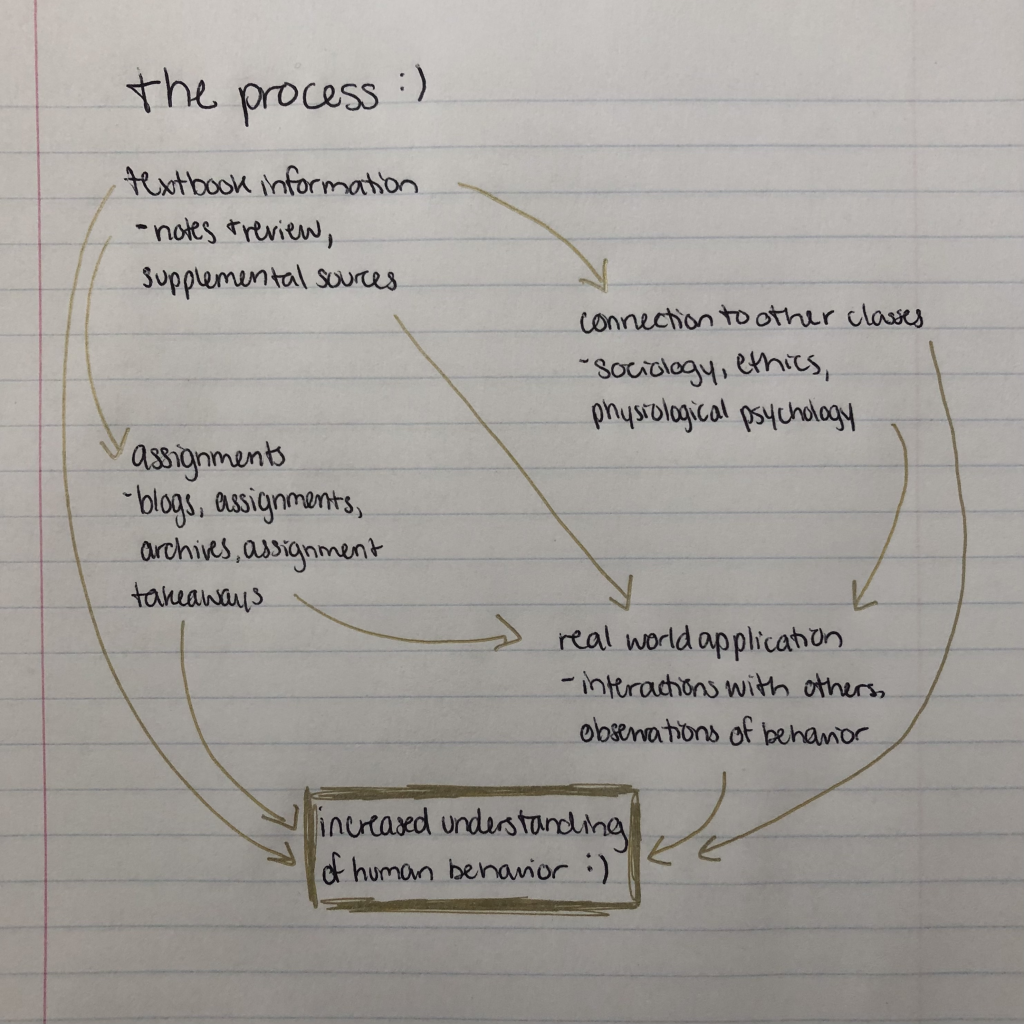 the process :)
textbook information
- notes + review,
supplemental sources
connection to other classes
- sociology, ethics,
physiological psychology
assignments
- blogs, assignments,
archives, assignment
takeaways
real world application
- interactions with others,
observations of behavior
increased understanding
of human behavior :)